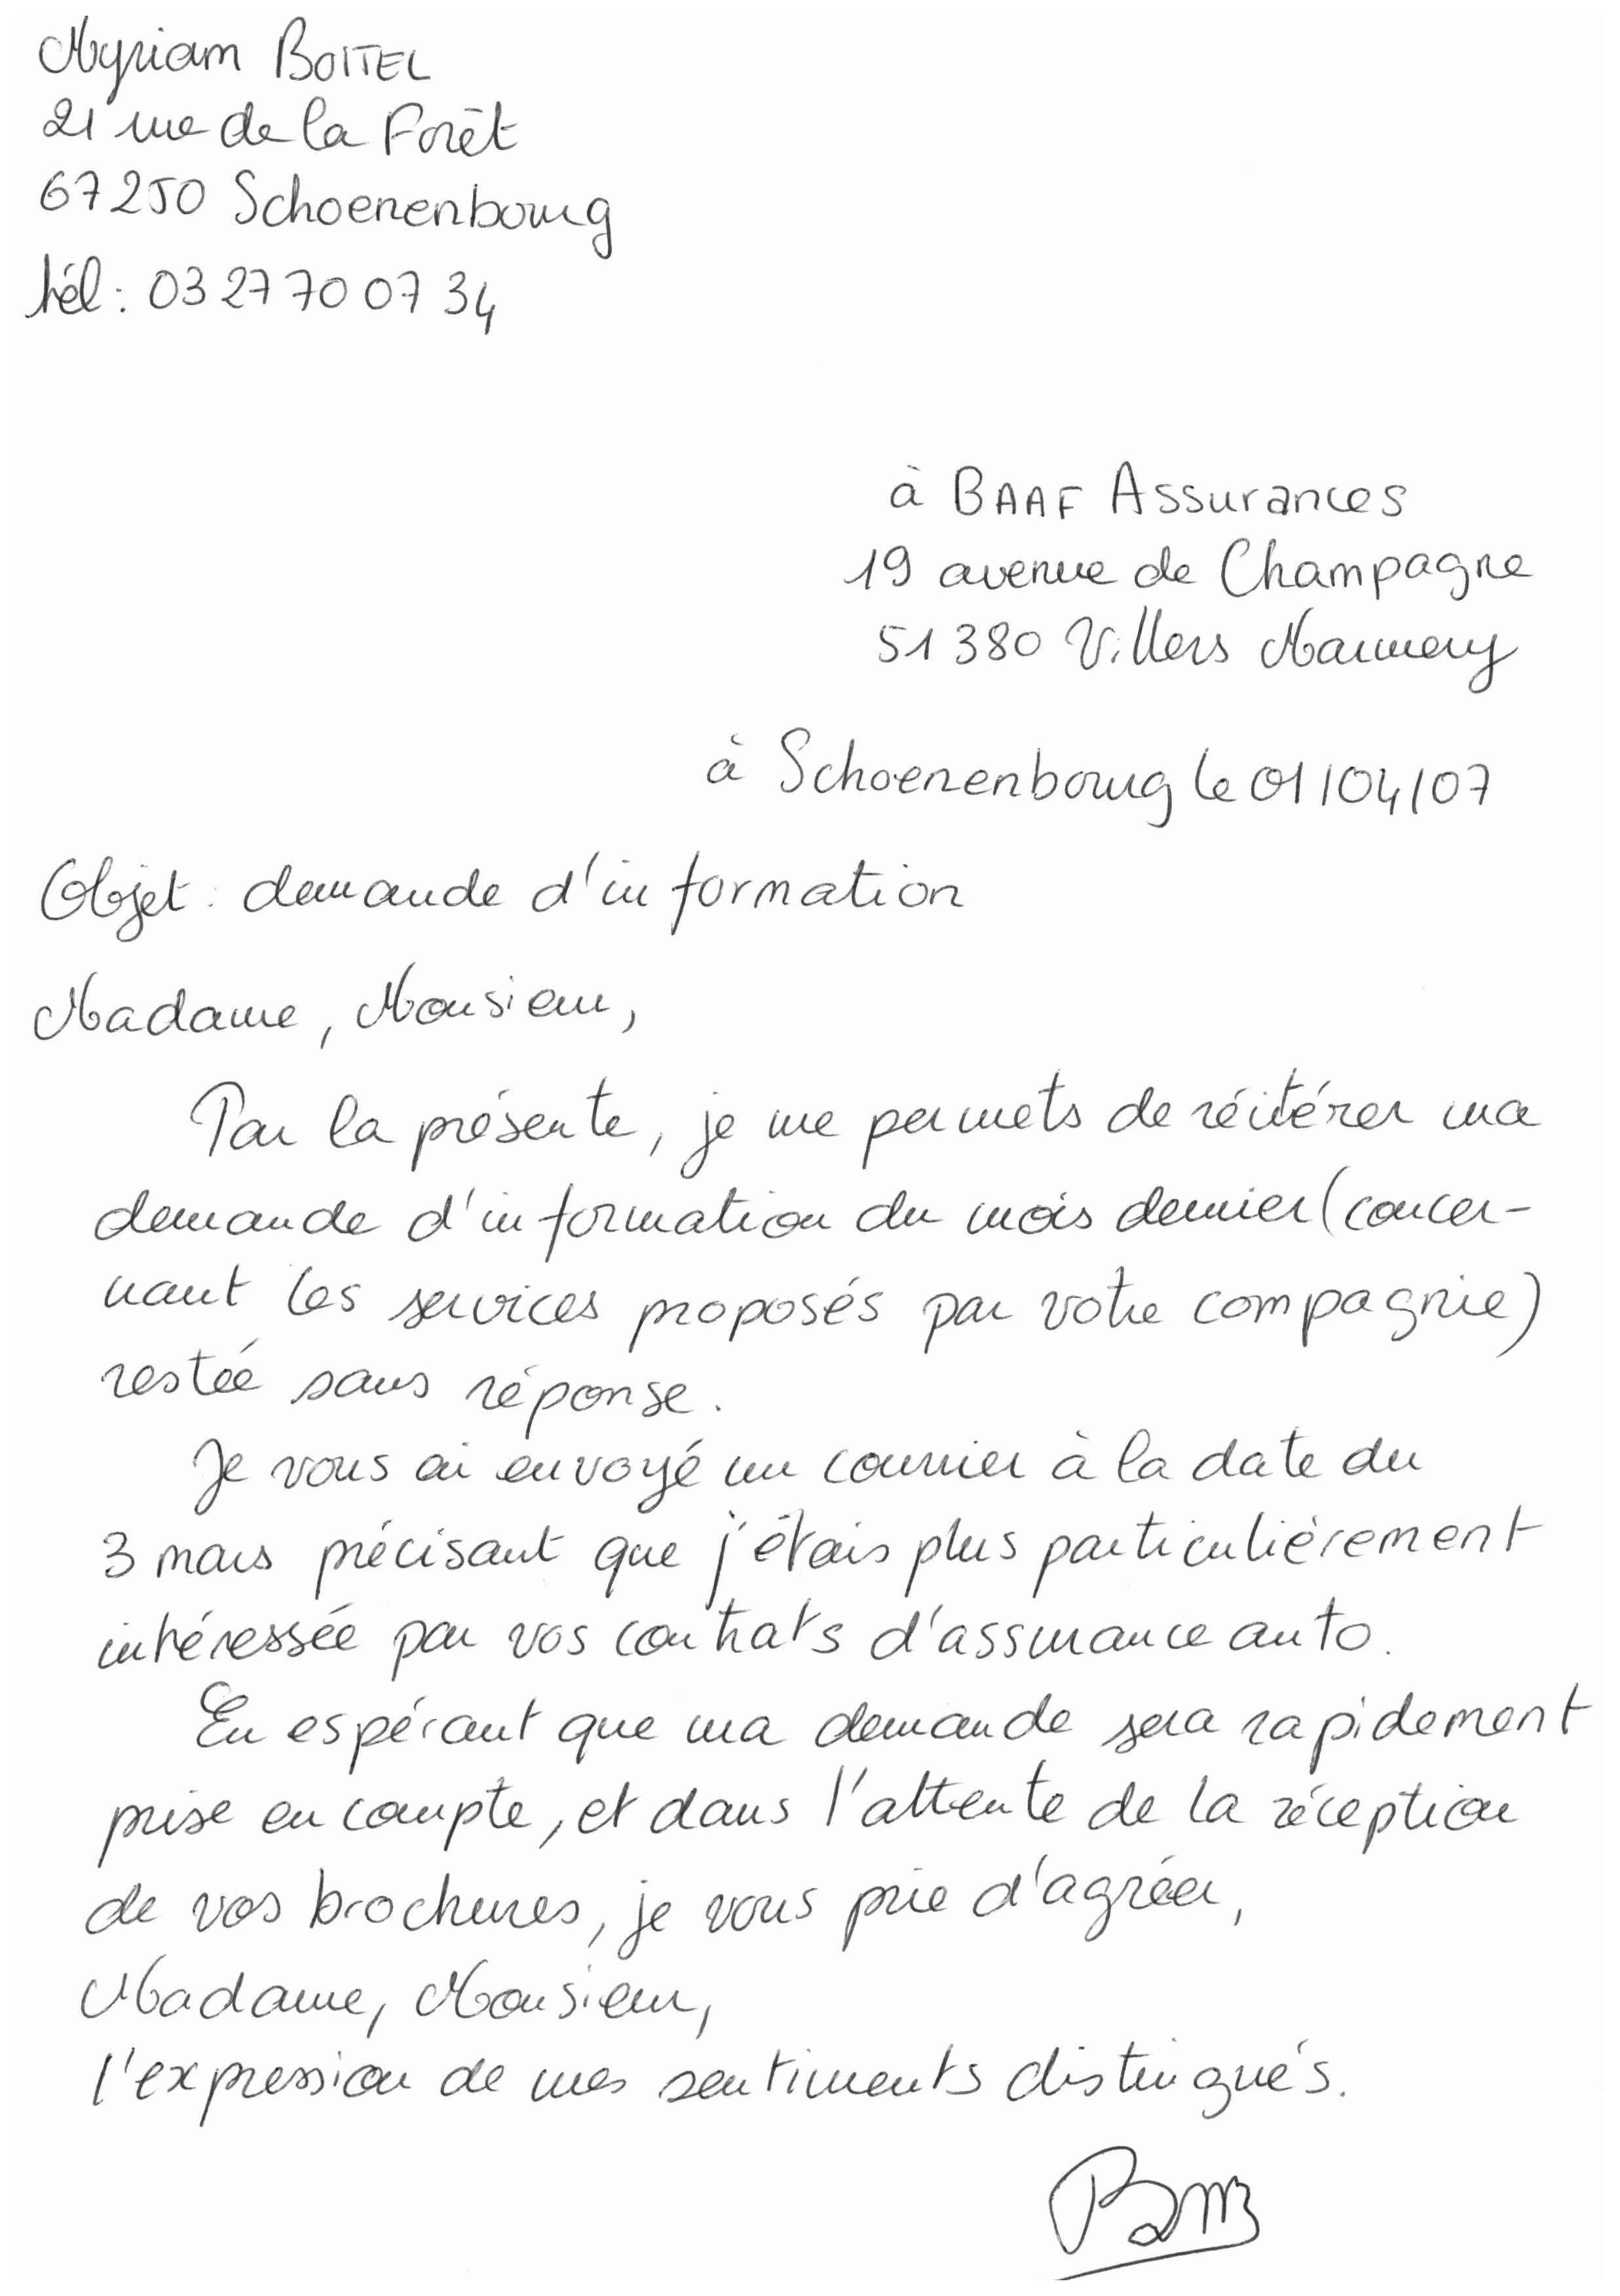 Myriam BOITEL
21 rue de la Forêt
67250 Schoenenbourg
tél : 03 27 70 07 34
à BAAF Assurances
19 avenue de Champagne
51380 Villers Marmery
à Schoenenbourg le 01/04/07
Objet : demande d'information
Madame, Monsieur,
Par la présente, je me permets de réitérer ma
demande d'information du mois dernier (concer-
nant les services proposés par votre compagnie)
restée sans réponse.
Je vous ai envoyé un courrier à la date du
3 mars précisant que j'étais plus particulièrement
intéressée par vos contrats d'assurance auto.
En espérant que ma demande sera rapidement
prise en compte, et dans l'attente de la réception
de vos brochures, je vous prie d'agréer,
Madame, Monsieur,
l'expression de mes sentiments distingués.